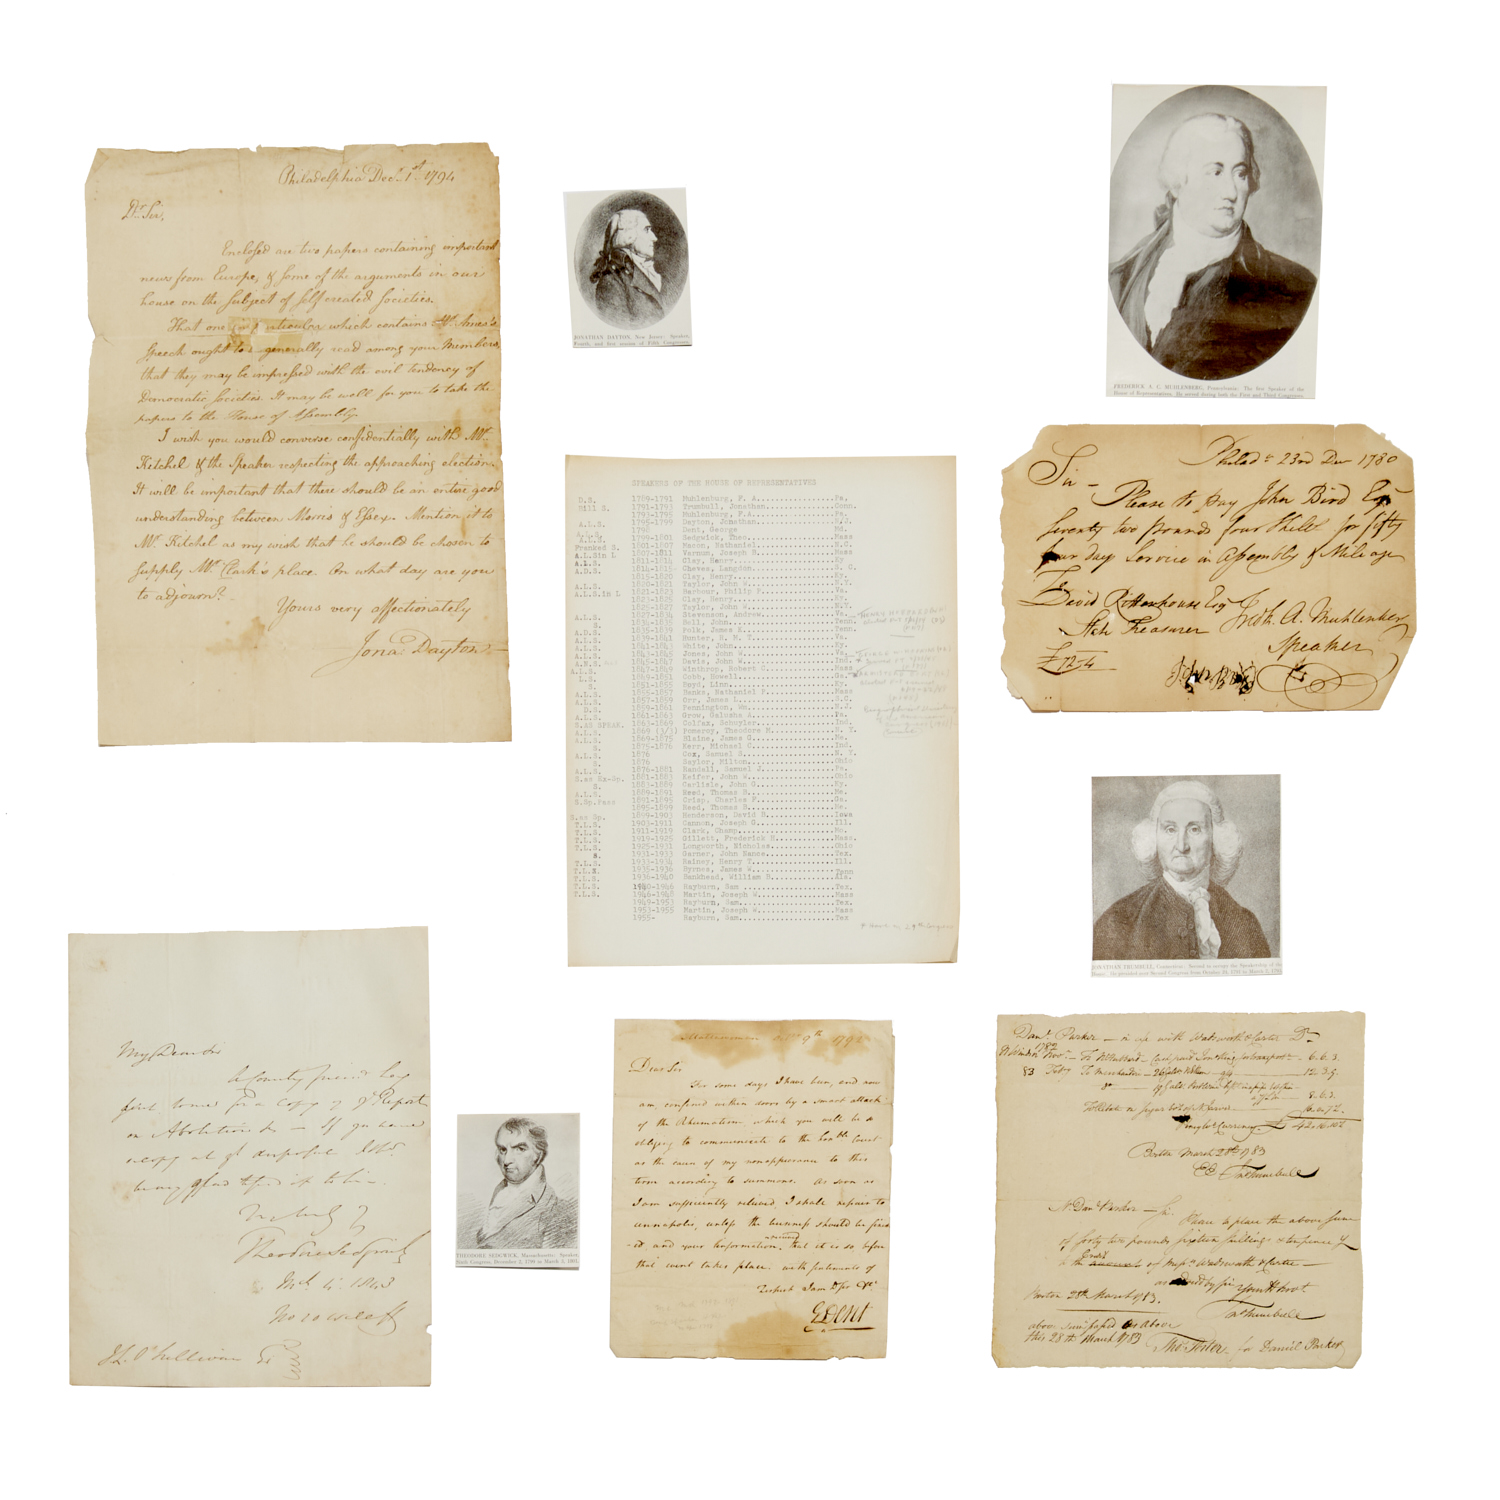 Philadelphia Dec. 1st 1794
Dr Sir,
Enclosed are two papers containing important
news from Europe, & some of the arguments in our
house on the subject of self created societies.
That one which contains Mr. Ames's
speech ought to generally read among your Members
that they may be impressed with the evil tendency of
Democratic Societies. It may be well for you to take the
papers to the House of Assembly.
I wish you would converse confidentially with Mr.
Kitchel & the Speaker respecting the approaching election.
It will be important that there should be an entire good
understanding between Morris & Essex. Mention it to
Mr. Kitchel as my wish that he should be chosen to
supply Mr. Clark's place. On what day are you
to adjourn?
Yours very affectionately
Jona: Dayton
JONATHAN DAYTON, New Jersey: Speaker,
Fourth, and first session of Fifth Congresses.
FREDERICK A. C. MUHLENBERG, Pennsylvania: The first Speaker of the
House of Representatives. He served during both the First and Third Congresses.
Philada 23rd Dec 1780
Sir –
Please to pay John Bird Esq
seventy two pounds four Shills for fifty
four days Service in Assembly & Mileage
To
David Rittenhouse Esq Fredk. A. Muhlenberg
State Treasurer Speaker
£72-4
SPEAKERS OF THE HOUSE OF REPRESENTATIVES
D.S. 1789-1791 Muhlenburg, F. A. Pa.
Bill S. 1791-1793 Trumbull, Jonathan Conn.
1793-1795 Muhlenburg, F.A. Pa.
A.L.S. 1795-1799 Dayton, Jonathan N.J.
179 Dent, George Md.
A.L.S. 1799-1801 Sedgwick, Theo. Mass
Franked S. 1801-1807 Macon, Nathaniel N.C.
A.L.Sin L 1807-1811 Varnum, Joseph B. Mass
A.L.S. 1811-1814 Clay, Henry Ky.
A.D.S. 1814-1815 Cheves, Langdon S. C.
1815-1820 Clay, Henry Ky.
A.L.S. 1820-1821 Taylor, John W. N.Y.
A.L.S.in L 1821-1823 Barbour, Philip P. Va.
1823-1825 Clay, Henry Ky.
1825-1827 Taylor, John W. N.Y.
A.L.S. 1827-1834 Stevenson, Andrew Va.
S. 1834-1835 Bell, John Tenn.
A.D.S. 1835-1839 Polk, James K. Tenn.
A.L.S. 1839-1841 Hunter, R. M. T. Va.
A.L.S. 1841-1843 White, John Ky.
A.L.S. 1843-1845 Jones, John W. Va.
A.N.S. 1845-1847 Davis, John W. Ind.
A.L.S. 1847-1849 Winthrop, Robert C. Mass
L.S. 1849-1851 Cobb, Howell Ga.
S. 1851-1855 Boyd, Linn Ky.
A.L.S. 1855-1857 Banks, Nathaniel P. Mass
A.L.S. 1857-1859 Orr, James L. S.C.
A.L.S. 1859-1861 Pennington, Wm. N.J.
A.L.S. 1861-1863 Grow, Galusha A. Pa.
S.AS SPEAK. 1863-1869 Colfax, Schuyler Ind.
A.L.S. 1869 (3/3) Pomeroy, Theodore M. N. Y.
A.L.S. 1869-1875 Blaine, James G. Me.
S. 1875-1876 Kerr, Michael C. Ind.
A.L.S. 1876 Cox, Samuel S. N. Y.
S. 1876 Saylor, Milton Ohio
A.L.S. 1876-1881 Randall, Samuel J. Pa.
S.as Ex-Sp. 1881-1883 Keifer, John W. Ohio
S. 1883-1889 Carlisle, John G. Ky.
A.L.S. 1889-1891 Reed, Thomas B. Me.
S.Sp.Pass 1891-1895 Crisp, Charles F. Ga.
1895-1899 Reed, Thomas B. Me.
S.as Sp. 1899-1903 Henderson, David B. Iowa
T.L.S. 1903-1911 Cannon, Joseph G. Ill.
T.L.S. 1911-1919 Clark, Champ Mo.
T.L.S. 1919-1925 Gillett, Frederick H. Mass.
T.L.S. 1925-1931 Longworth, Nicholas Ohio
S. 1931-1933 Garner, John Nance Tex.
T.L.S. 1933-1934 Rainey, Henry T. Ill.
T.L.S. 1935-1936 Byrnes, James W. Tenn
T.L.S. 1936-1940 Bankhead, William B. Ala.
T.L.S. 1940-1946 Rayburn, Sam Tex.
1946-1948 Martin, Joseph W. Mass
1949-1953 Rayburn, Sam Tex.
1953-1955 Martin, Joseph W. Mass
1955- Rayburn, Sam Tex
JONATHAN TRUMBULL, Connecticut: Second to occupy the Speakership of the
House. He presided over Second Congress from October 24, 1791 to March 2, 1793.
My Dear Sir
A County friend
for a copy of yr Report
on Abolition – If you have
a copy at yr disposal I shd
be very glad to send it to him.
Truly Yr
Theodore Sedgwick
Mch 4. 1843
J L. O'Sullivan Esq
THEODORE SEDGWICK, Massachusetts: Speaker,
Sixth Congress, December 2, 1799 to March 3, 1801.
9th 1792
Dear Sir
For some days I have been, and now
am confined within doors by a smart attack
of the Rheumatism, which you will be so
obliging to communicate to the honble Court
as the cause of my nonappearance to this
term according to summons. As soon as
I am sufficiently relieved, I shall repair to
Annapolis, unless the business should be finish
-ed, and your information, received that it is so before
that event takes place. with sentiments of
respect I am Dr Sir &c.
GDent
Danl Parker – in a/c with Wadsworth & Carter Dr
1782
6. 6. 3.
83 Feby To
8. 6. 3.
Currency £ 42. 16. 10
Boston March 28th 1783
EE JnoTrumbull
Mr Danl Parker – Sir
Please to place the above sum
of forty two pounds sixteen shillings & ten pence
to the Credit of Messrs Wadsworth & Carter –
Boston 28th March 1783.
JnoTrumbull
above sum paid as above
this 28th March 1783
Thos Foster for Daniel Parker